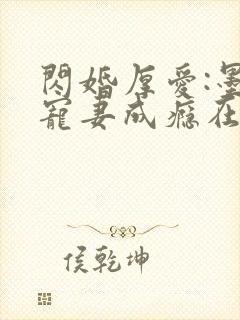 閃婚厚愛:墨
寵妻成癮在
侯乾坤